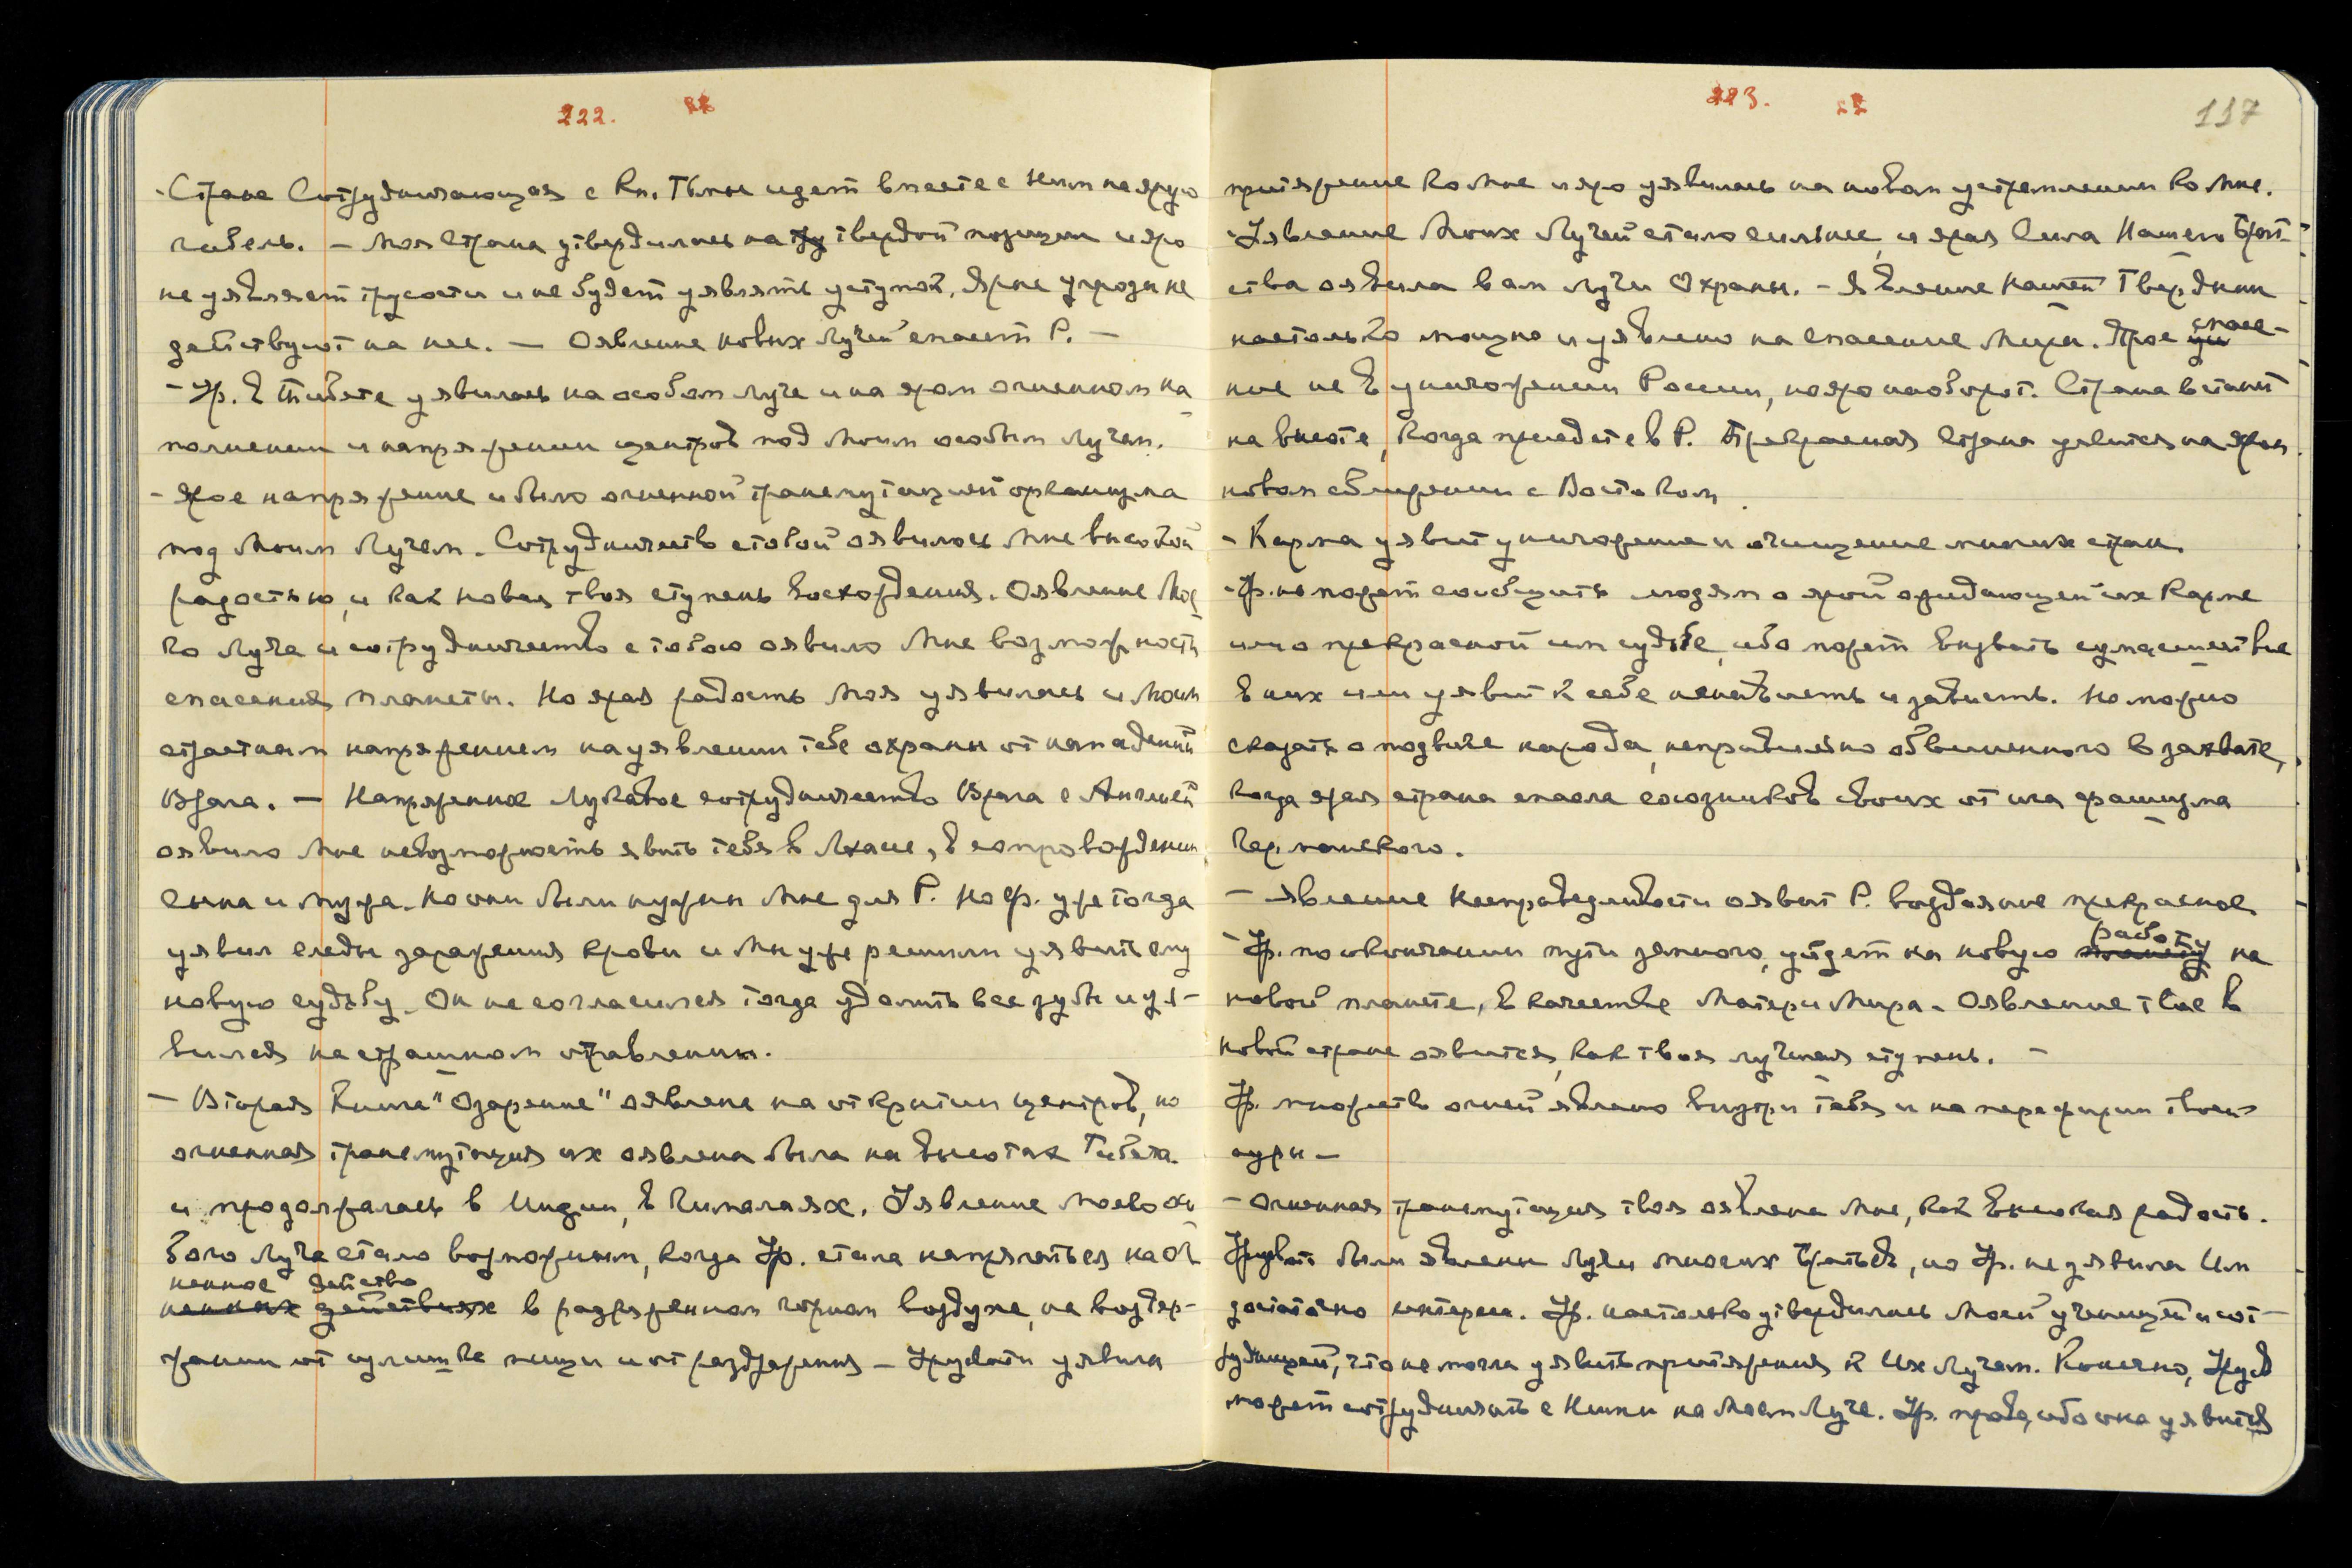 222. 22
- Страна Сотрудничающая с Кн. Тьмы идет вместе с Ним на ярую
гибель. — Моя Страна утвердилась на твердой позиции и яро
не уявляет трусости и не будет уявлять уступок. Ярые угрозы не
действуют на нее. — Оявление новых Лучей спасет Р. —
- Ур. в Тибете уявилась на особом луче и на яром огненном на-
полнении и напряжении центров под Моим особым Лучем.
- Ярое напряжение и было огненной трансмутацией организма
под Моим Лучем. Сотрудничество с тобой оявилось Мне высокой
радостью, и как новая твоя ступень восхождения. Оявление Мое-
го Луча и сотрудничество с тобою оявило Мне возможность
спасения планеты. Но ярая радость Моя уявилась и Моим
страстным напряжением на уявлении тебе охраны от нападений
Врага. — Напряженное Лукавое сотрудничество Врага с Англией
оявило Мне невозможность явить тебя в Лхасе, в сопровождении
сына и мужа. Но они были нужны Мне для Р. Но Ф. уже тогда
уявил следы заражения крови и Мы уже решили уявить ему
новую судьбу. Он не согласился тогда удалить все зубы и уя-
вился на страшном отравлении.
— Вторая Книга "Озарение" оявлена на открытии центров, но
огненная трансмутация их оявлена была на высотах Тибета
и продолжалась в Индии, в Гималаях. Уявление Моего осо-
бого Луча стало возможным, когда Ур. стала напрягаться на ог-
ненное действо
ненных действиях в разряженном горном воздухе, на воздер-
жании от излишка пищи и от раздражения — Урусвати уявила
223. 22
117
притяжение ко Мне и яро уявилась на новом устремлении ко Мне.
- Уявление Моих Лучей стало сильнее, и ярая Сила Нашего Брат-
ства оявила вам лучи Охраны. — Явление Нашей Твердыни
настолько мощно и уявлено на спасение Мира. Ярое спасе-
ние не в уничтожении России, но яро наоборот. Страна встанет
на высоте, когда приедете в Р. Прекрасная Страна уявится на яром
новом сближении с Востоком.
- Карма уявит уничтожение и очищение многих стран.
- Ур. не может сообщить людям о ярой ожидающей их Карме
или о прекрасной им судьбе, ибо может вызвать сумасшествие
в них или уявит к себе ненависть и зависть. Но можно
сказать о подвиге народа, неправильно обвиненного в захвате,
когда ярая страна спасла союзников своих от ига фашизма
Германского.
— Явление Несправедливости оявит Р. воздаяние прекрасное.
- Ур. по окончании пути земного, уйдет на новую работу на
новой планете, в качестве Матери Мира. Оявление твое в
новой стране оявится, как твоя лучшая ступень. —
Ур. множество огней явлено внутри тебя и на периферии твоей
ауры —
- Огненная трансмутация твоя оявлена Мне, как высокая радость.
Урусвати были явлены Лучи многих Братьев, но Ур. не уявила Им
достаточно интереса. Ур. настолько утвердилась Моей ученицей и сот-
рудницей, что не могла уявить притяжения к Их Лучам. Конечно, Урусв.
может сотрудничать с Ними на Моем Луче. Ур. права, ибо она уявится